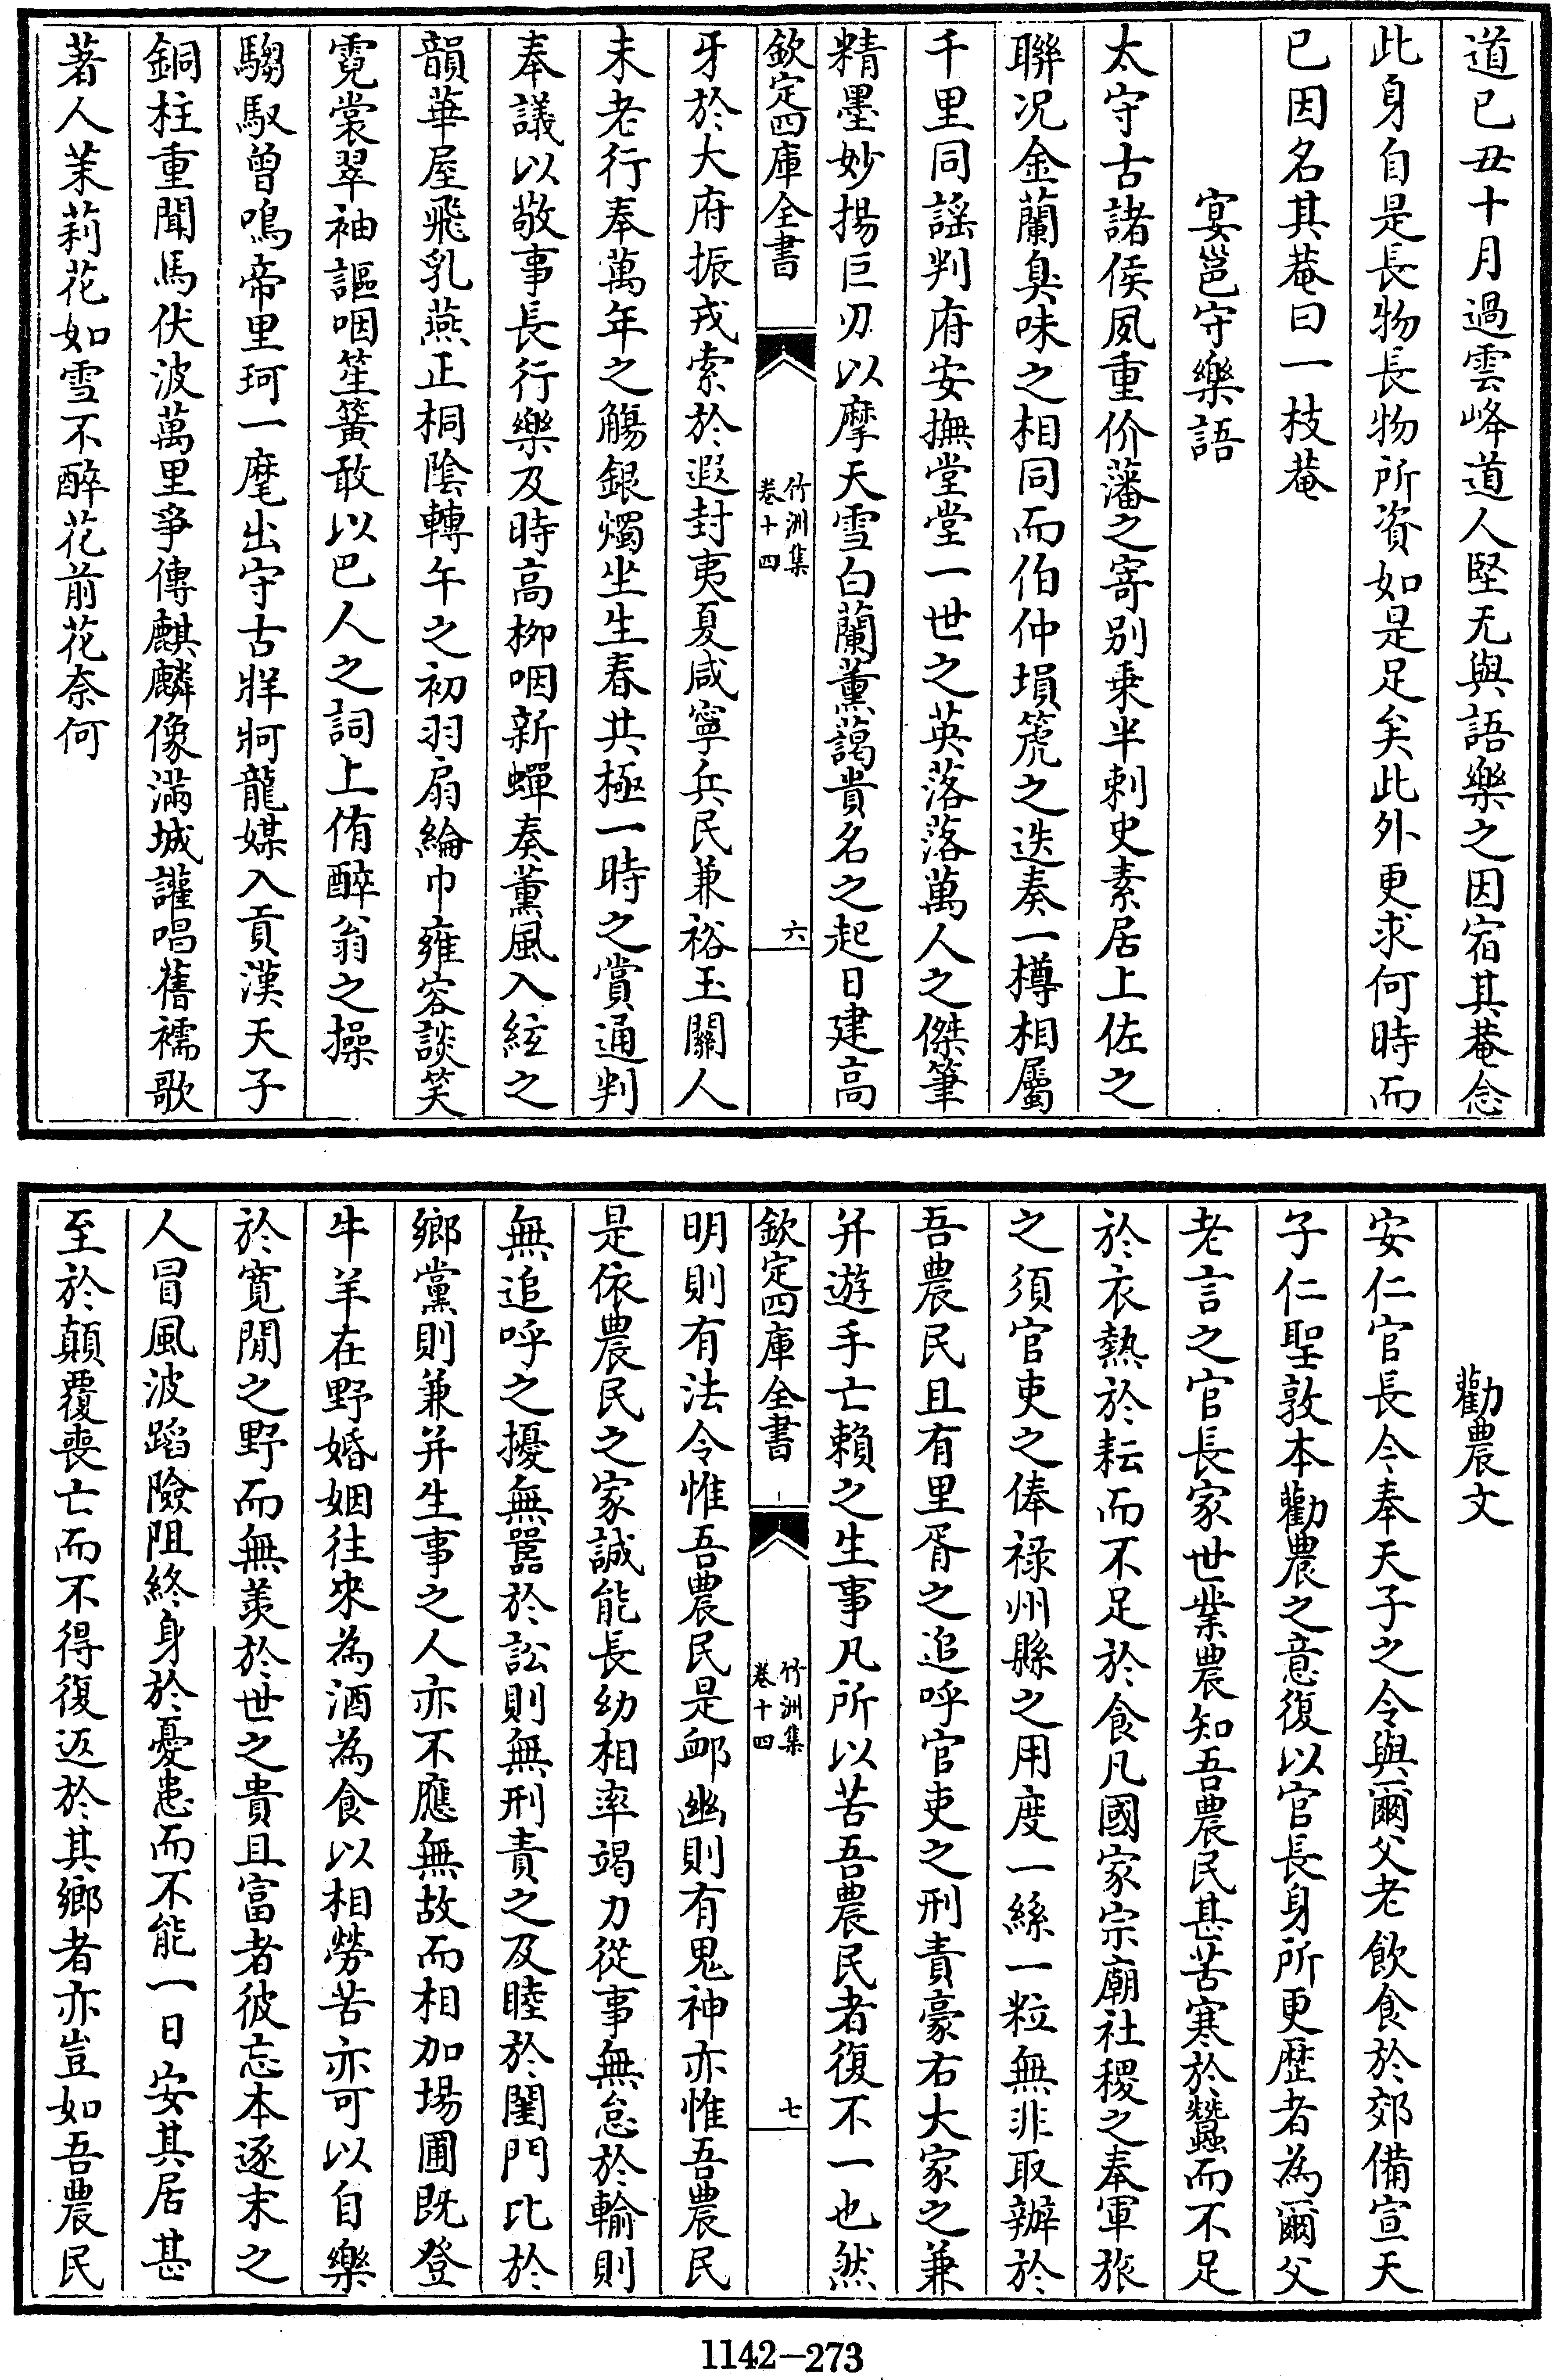 道已丑十月過雲峰道人堅无與語樂之因宿其菴念
此身自是長物長物所資如是足矣此外更求何時而
已因名其菴曰一枝菴
宴邕守樂語
太守古諸侯夙重价藩之寄别乗半刺史素居上佐之
聯况金蘭臭味之相同而伯仲塤箎之迭奏一樽相屬
千里同謡判府安撫堂堂一世之英落落萬人之傑筆
精墨妙揚巨刃以摩天雪白蘭薰藹貴名之起日建高
欽定四庫全書
竹洲集
卷十四
六
牙於大府振戎索於遐封夷夏咸寧兵民兼裕玉關人
未老行奉萬年之觴銀燭坐生春共極一時之賞通判
奉議以敬事長行樂及時高栁咽新蟬奏薰風入絃之
韻華屋飛乳燕正桐陰轉午之初羽扇綸巾雍容談笑
霓裳翠袖謳咽笙簧敢以巴人之詞上侑醉翁之操
騶馭曾鳴帝里珂一麾出守古牂牁龍媒入貢漢天子
銅柱重聞馬伏波萬里爭傳麒麟像滿城讙唱舊襦歌
著人茉莉花如雪不醉花前花奈何
勸農文
安仁官長今奉天子之令與爾父老飲食於郊備宣天
子仁聖敦本勸農之意復以官長身所更歴者為爾父
老言之官長家世業農知吾農民甚苦寒於蠶而不足
於衣熱於耘而不足於食凡國家宗廟社稷之奉軍旅
之須官吏之俸禄州縣之用度一絲一粒無非取辦於
吾農民且有里胥之追呼官吏之刑責豪右大家之兼
并遊手亡賴之生事凡所以苦吾農民者復不一也然
欽定四庫全書
竹洲集
卷十四
七
明則有法令惟吾農民是䘏幽則有鬼神亦惟吾農民
是依農民之家誠能長幼相率竭力從事無怠於輸則
無追呼之擾無嚚於訟則無刑責之及睦於閨門比於
鄉黨則兼并生事之人亦不應無故而相加場圃既登
牛羊在野婚姻往來為酒為食以相勞苦亦可以自樂
於寛閒之野而無羨於世之貴且富者彼忘本逐末之
人冒風波蹈險阻終身於憂患而不能一日安其居甚
至於顛覆喪亡而不得復返於其鄉者亦豈如吾農民
1142-273